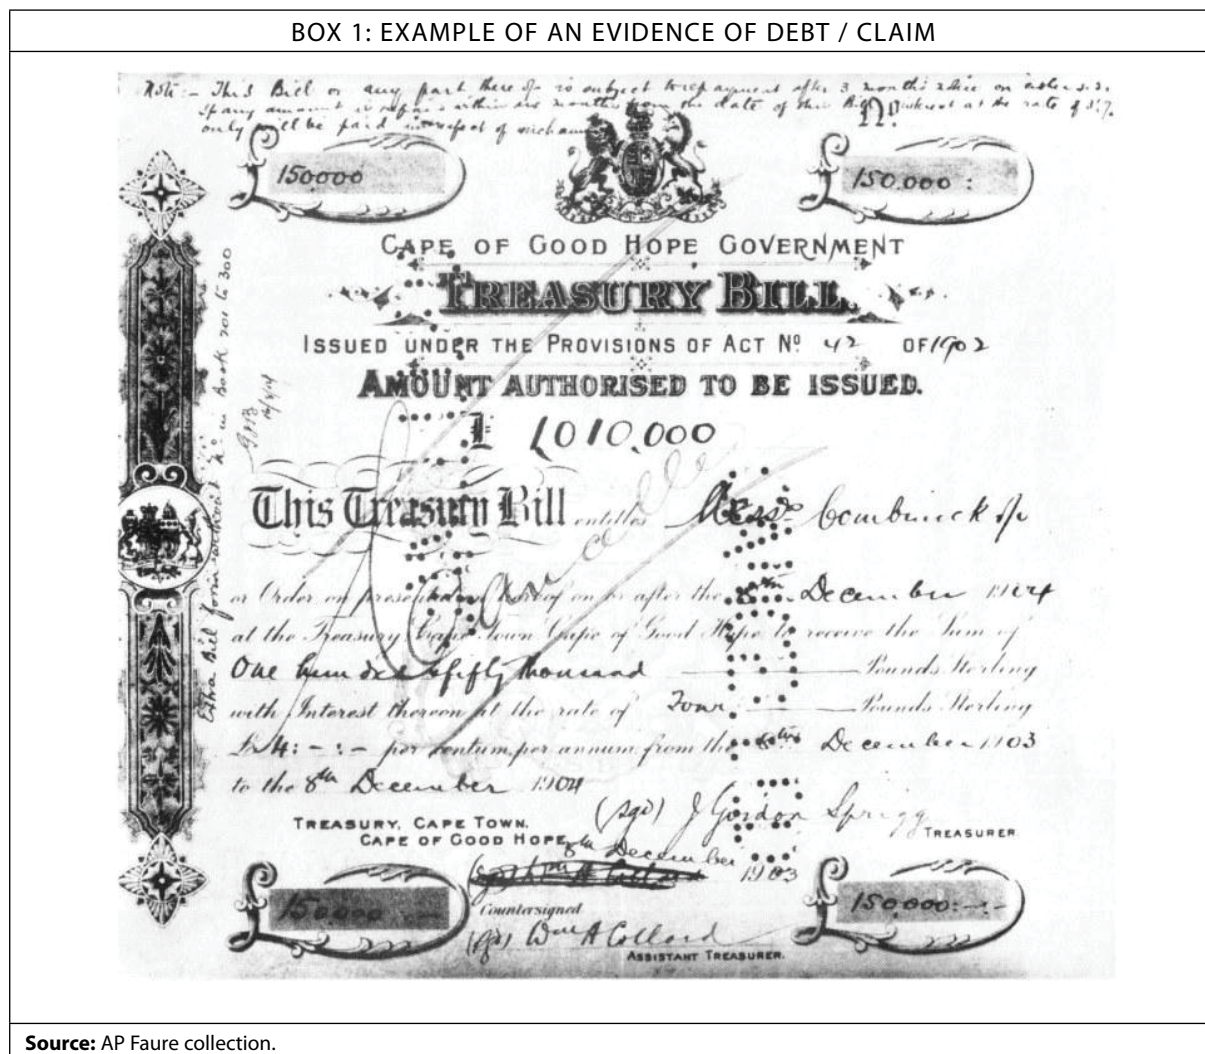 BOX 1: EXAMPLE OF AN EVIDENCE OF DEBT / CLAIM
Note:- This Bill or any part thereof is subject to repayment after 3 months notice on
If any amount is within months from the date of this Bill interest at the rate of
only will be paid in respect of
150000
150.000 :
CAPE OF GOOD HOPE GOVERNMENT
TREASURY BILL.
ISSUED UNDER THE PROVISIONS OF ACT No 42 OF 1902
AMOUNT AUTHORISED TO BE ISSUED.
£ 1010,000
This Treasury Bill entitles Messrs
or Order on presentation hereof on or after the 8th December 1904
at the Treasury Cape Town Cape of Good Hope to receive the Sum of
One hundred & fifty thousand Pounds Sterling
with Interest thereon at the rate of Four Pounds Sterling
£4:-:- per Centum per annum from the 8th December 1903
to the 8th December 1904
(sgd) J Gordon Sprigg
TREASURER.
TREASURY, CAPE TOWN.
CAPE OF GOOD HOPE, 8th December 1903
150000
Countersigned
(sgd) Wm A Collard
ASSISTANT TREASURER.
150,000:-:-
Extra Bill form without No in Book 201 to 300
Cancelled
Source: AP Faure collection.